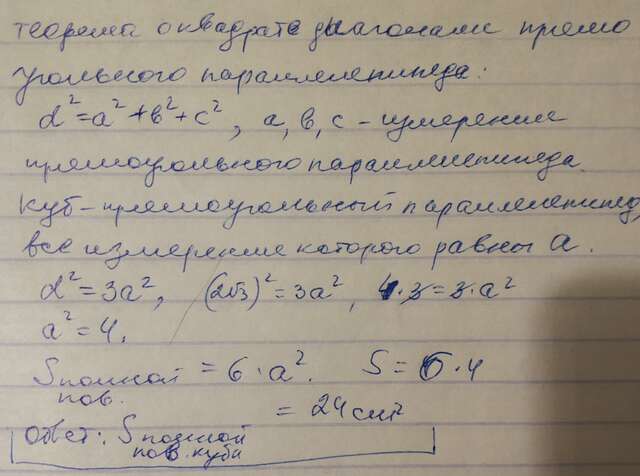 теорема о квадрате диагонали прямо
угольного параллелепипеда:
d²=a²+b²+c², a, b, c - измерение
прямоугольного параллелепипеда.
Куб-прямоугольный параллелепипед,
все измерение которого равны a.
d²=3a², (2√3)²=3a², 4·3=3·a²
a²=4.
Sполной пов. = 6·a². S=6·4
= 24см²
Ответ: Sполной пов. куба